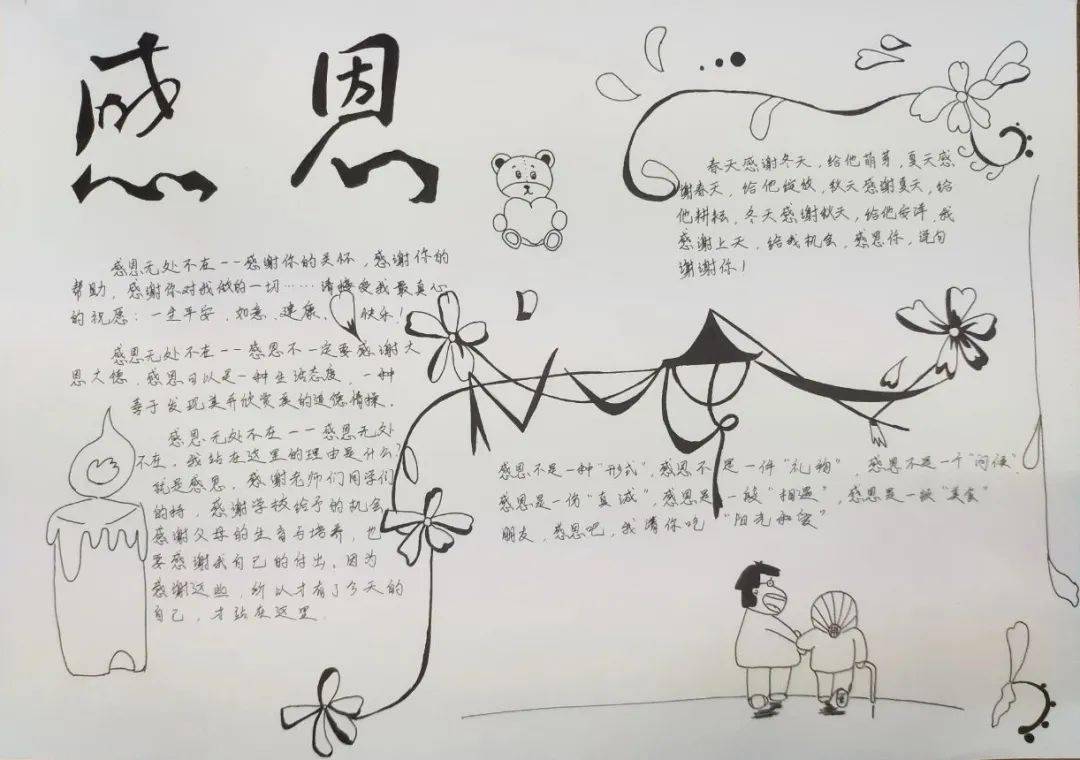 感恩
感恩无处不在--感谢你的关怀,感谢你的
帮助,感谢你对我做的一切……请接受我最真心
的祝愿:一生平安,如意,健康,快乐!
感恩无处不在--感恩不一定要感谢大
恩大德,感恩可以是一种生活态度,一种
善于发现美并欣赏美的道德情操.
感恩无处不在--感恩无处
不在,我站在这里的理由是什么?
就是感恩,感谢老师们同学们
的持,感谢学校给予的机会
感谢父母的生育与培养,也
要感谢我自己的付出,因为
感谢这些,所以才有了今天的
自己,才站在这里.
春天感谢冬天,给他萌芽,夏天感
谢春天,给他绽放,秋天感谢夏天,给
他耕耘,冬天感谢秋天,给他安详,我
感谢上天,给我机会,感恩你,说句
谢谢你!
感恩不是一种"形式",感恩不是一件"礼物",感恩不是一个"问候".
感恩是一份"真诚",感恩是一般"相遇",感恩是一顿"美食"
朋友,感恩吧,我请你吃"阳光和爱"